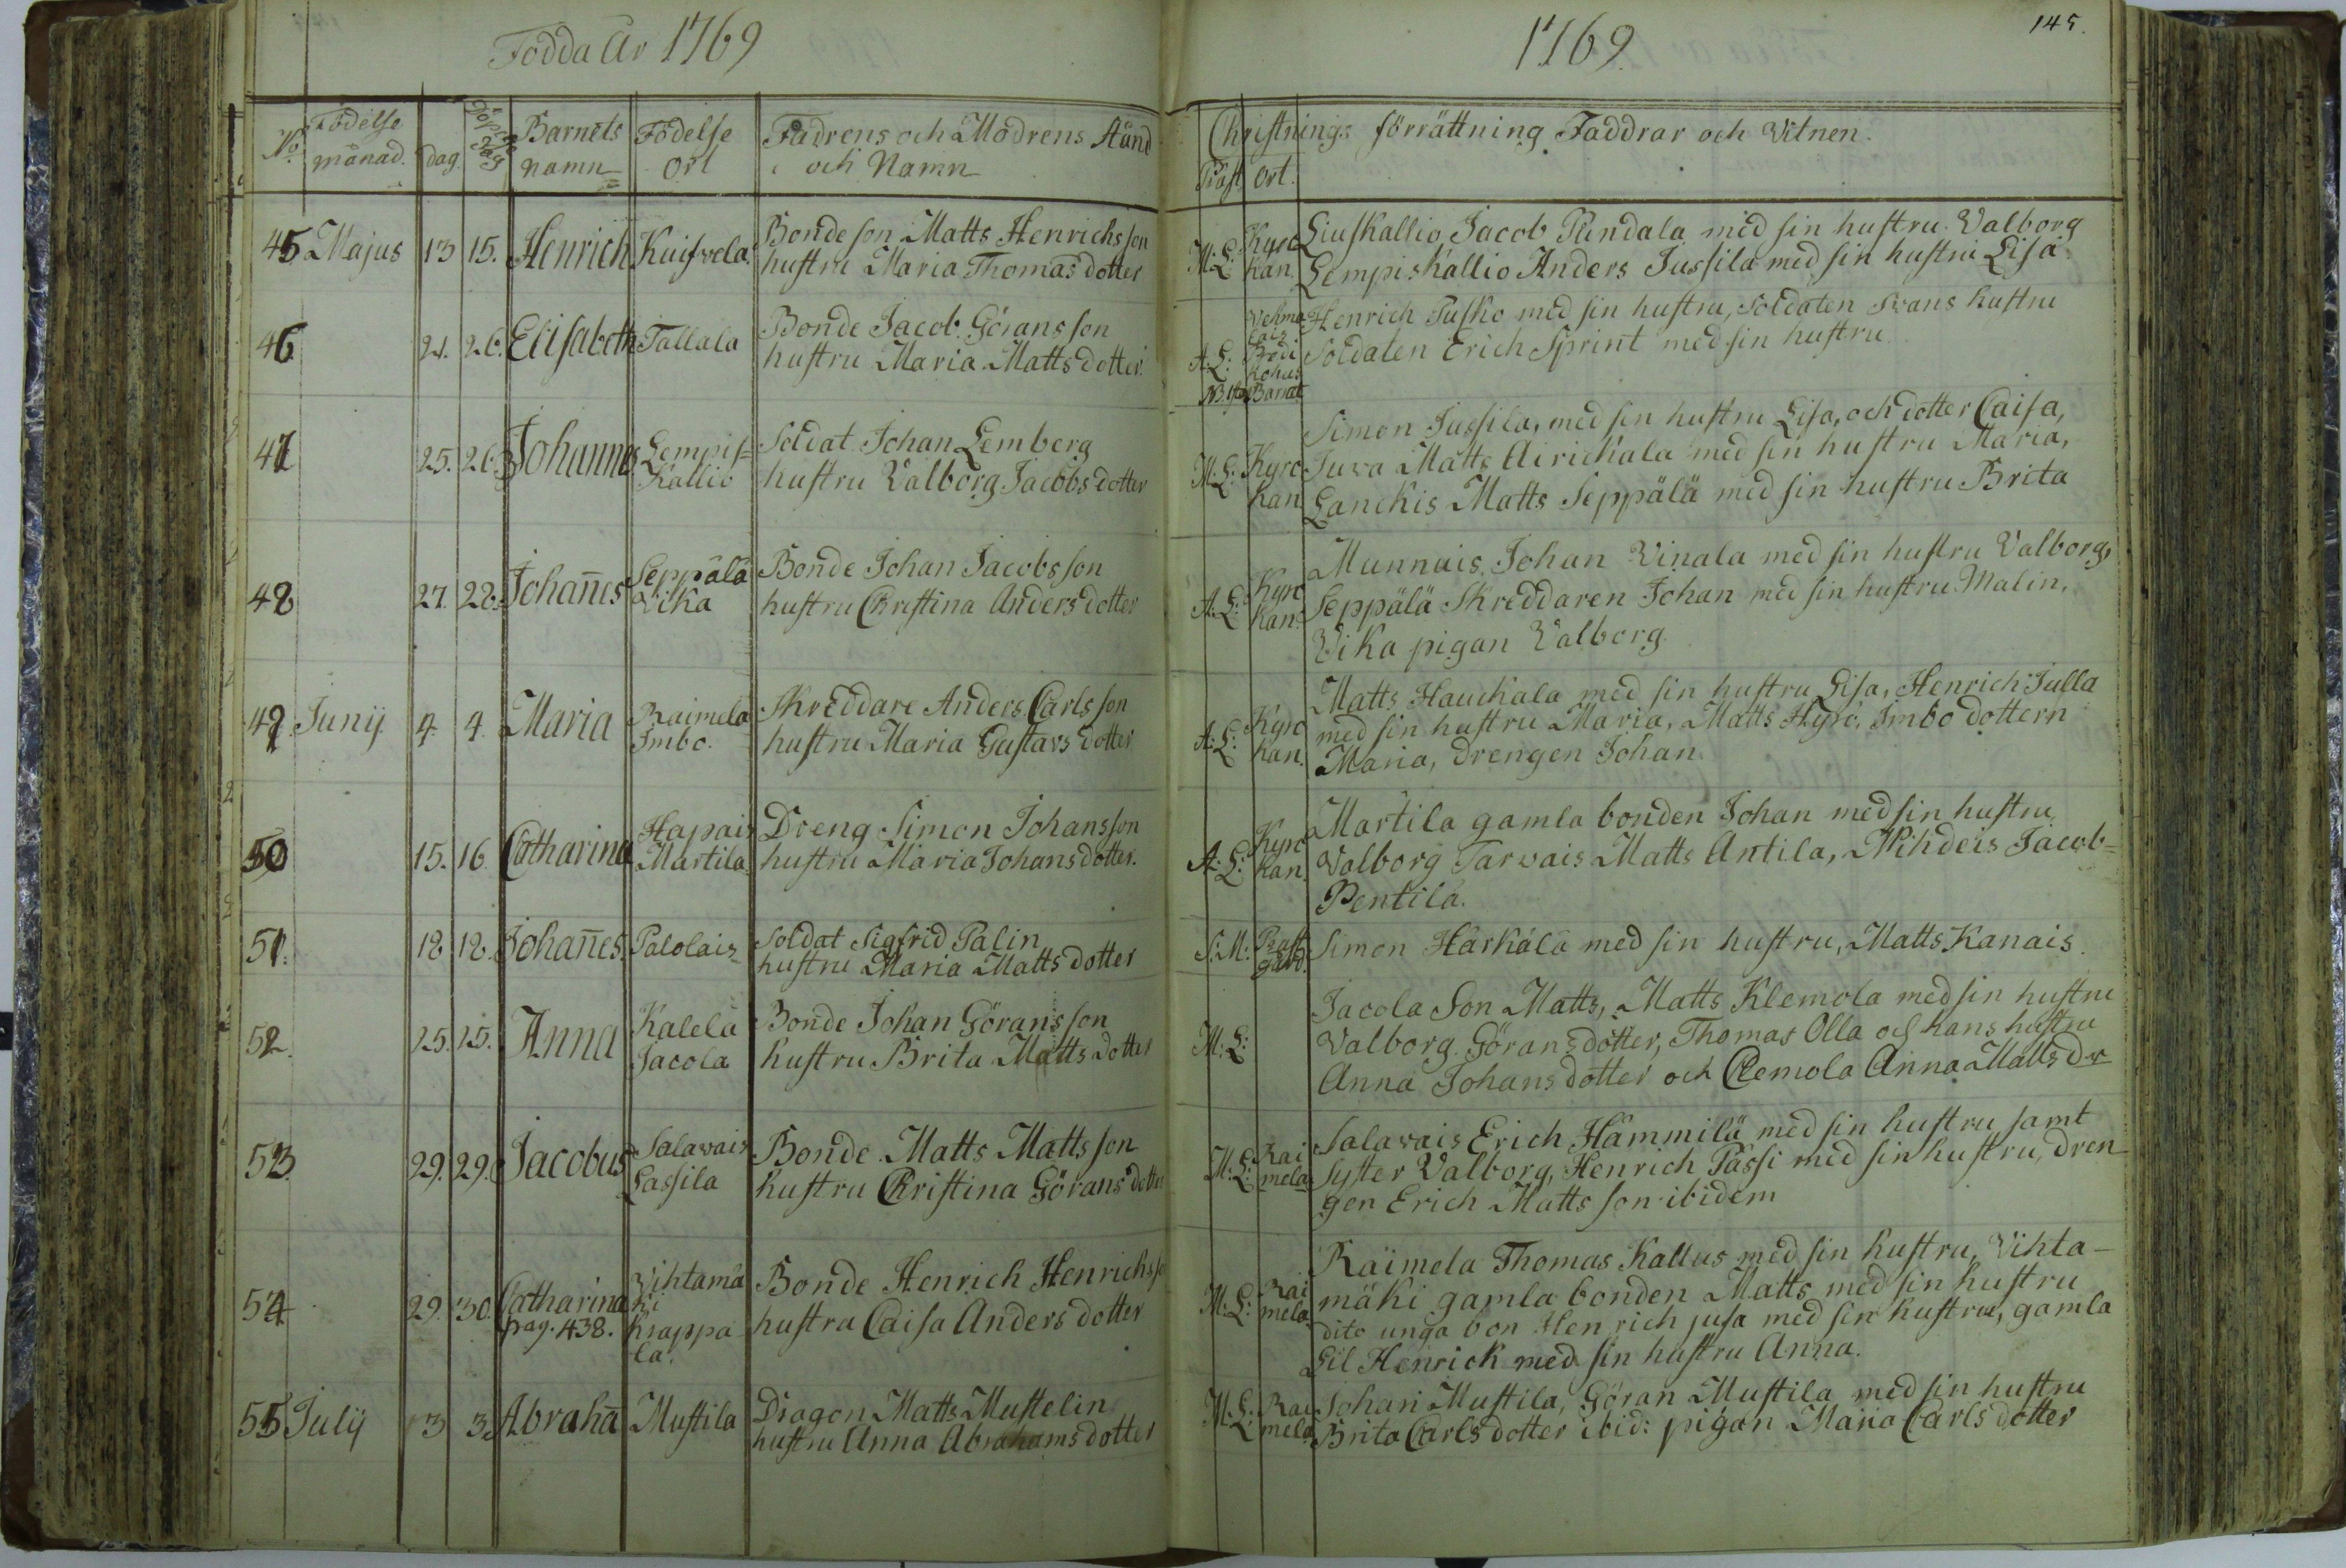 Födda År 1769
1769.
145.
No. Födelse månad. dag. Döpelse dag Barnets namn Födelse Ort Fadrens och Modrens Stånd och Namn
Christnings förrättning Faddrar och Vitnen.
Präst Ort.
45 Majus 13 15. Henrich Bondeson Matts Henrichsson
hustru Maria Thomas dotter
M: L: Kyrc kan. Liuskallio Jacob Pundala med sin hustru Valborg
Lempiskallio Anders Jussila med sin hustru Lisa
46 21. 26. Elisabeth Tallala Bonde Jacob Göransson
hustru Maria Mattsdotter.
A: L: Henrich Pusko med sin hustru, Soldaten Svans hustru
Soldaten Erich Sprint med sin hustru
47 25. 26. Johannes Lempis=
Kallio Soldat Johan Lemberg
hustru Valborg Jacobs dotter
M: L: Kyrc kan Simon Jussila, med sin hustru Lisa, och dotter Caisa,
Juva Matts Airickala med sin hustru Maria,
Lanckis Matts Seppälä med sin hustru Brita
48 27. 28. Johan̄es Seppälä
Vika Bonde Johan Jacobsson
hustru Christina Anders dotter
A: L: Kyrc kan. Munnais Johan Vinala med sin hustru Valborg,
Seppälä Skreddaren Johan med sin hustru Malin,
Vika pigan Valborg.
49 Junij 4. 4. Maria Raimela
Imbo. Skreddare Anders Carlsson
hustru Maria Gustavs dotter
A: L: Kyrc kan. Matts Hauckala med sin hustru Lisa, Henrich Julla
med sin hustru Maria, Matts Hyrö, Imbo dottern
Maria, Drengen Johan.
50 15. 16. Catharina Hapais
Martila Dreng Simon Johansson
hustru Maria Johansdotter.
A: L: Kyrc kan. Martila gamla bonden Johan med sin hustru
Valborg Tarvais Matts Antila, Mihdeis Jacob=
Pentila.
51. 18 18. Johan̄es. Palolais Soldat Sigfrid Palin
hustru Maria Matts dotter
S. M: Präst gård. Simon Härkälä med sin hustru, Matts Kanais.
52. 25. 25. Anna Kalela
Jacola Bonde Johan Göransson
hustru Brita Matts dotter
M: L: Jacola Son Matts, Matts Klemola med sin hustru
Valborg Göransdotter, Thomas Olla och hans hustru
Anna Johansdotter och Clemola Anna Matts Dr
53. 29. 29. Jacobus Salavais
Lassila Bonde Matts Mattsson
hustru Christina Görans dotter
M: L: Rai mela Salavais Erich Hämmilä med sin hustru samt
Syster Valborg, Henrich Passi med sin hustru, dren
gen Erich Mattsson ibidem
54 29. 30. Catharina
pag. 438. Vihtamä
ki
Krappa
la. Bonde Henrich Henrichss
hustra Caisa Anders dotter
M: L: Rai mela. Räimela Thomas Kallus med sin hustru, Vihta-
mäki gamla bonden Matts med sin hustru
dito unga bon Henrich jusa med sin hustru, gamla
Lil Henrick med sin hustru Anna.
55 Julij 3 3. Abrahā Mustila Dragon Matts Mustelin
hustru Anna Abrahams dotter
M: L: Rai mela Johan Mustila, Göran Mustila med sin hustru
Brita Carlsdotter ibid: pigan Maria Carls dotter